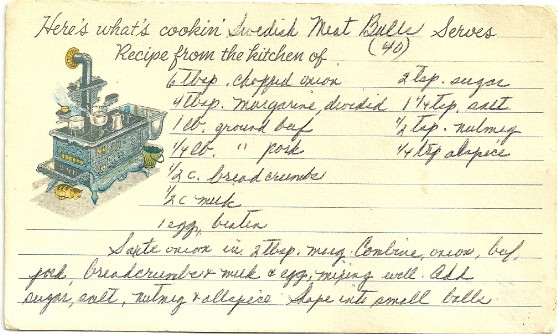 Here's what's cookin' Swedish Meat Balls Serves
(40)
Recipe from the kitchen of
6 tbsp. chopped onion 2 tsp. sugar
4 tbsp. margarine, divided 1 1/4 tsp. salt
1 lb. ground beef 1/2 tsp. nutmeg
1/4 lb. " pork 1/4 tsp alspice
1/2 c. bread crumbs
1/2 c milk
1 egg, beaten
Saute onion in 2 tbsp. marg. Combine, onion, beef,
pork, breadcrumbs & milk & egg, mixing well. Add
sugar, salt, nutmeg & allspice. Shape into small balls